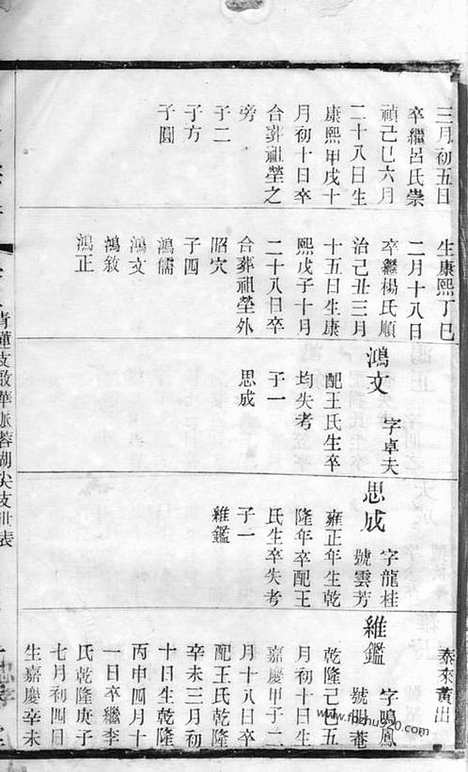 三月初五日
卒繼呂氏崇
禎己巳六月
二十八日生
康熙甲戌十
月初十日卒
合葬祖塋之
旁
子二
子方
子圓
生康熙丁巳
二月十八日
卒繼楊氏順
治己丑三月
十五日生康
熙戊子十月
二十八日卒
合葬祖塋外
昭穴
子四
鴻儒
鴻文
鴻敘
鴻正
鴻文 字卓夫
配王氏生卒
均失考
子一
思成
思成 字龍桂
號雲芳
雍正年生乾
隆年卒配王
氏生卒失考
子一
維鑑
維鑑 字鳴鳳
號明菴
乾隆己巳五
月初十日生
嘉慶甲子二
月十八日卒
配王氏乾隆
辛未三月初
十日生乾隆
丙申四月十
一日卒繼李
氏乾隆庚子
七月初四日
生嘉慶辛未
泰來黃出
青蓮支啟華派蓉湖尖支世表
www.fozhu920.com